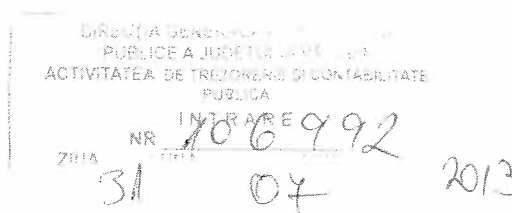 DIRECŢIA
PUBLICE A JUDEŢULUI
ACTIVITATEA DE TREZORERIE ŞI CONTABILITATE
PUBLICA
INTRARE
NR 106992
ZIUA
31 07 2013